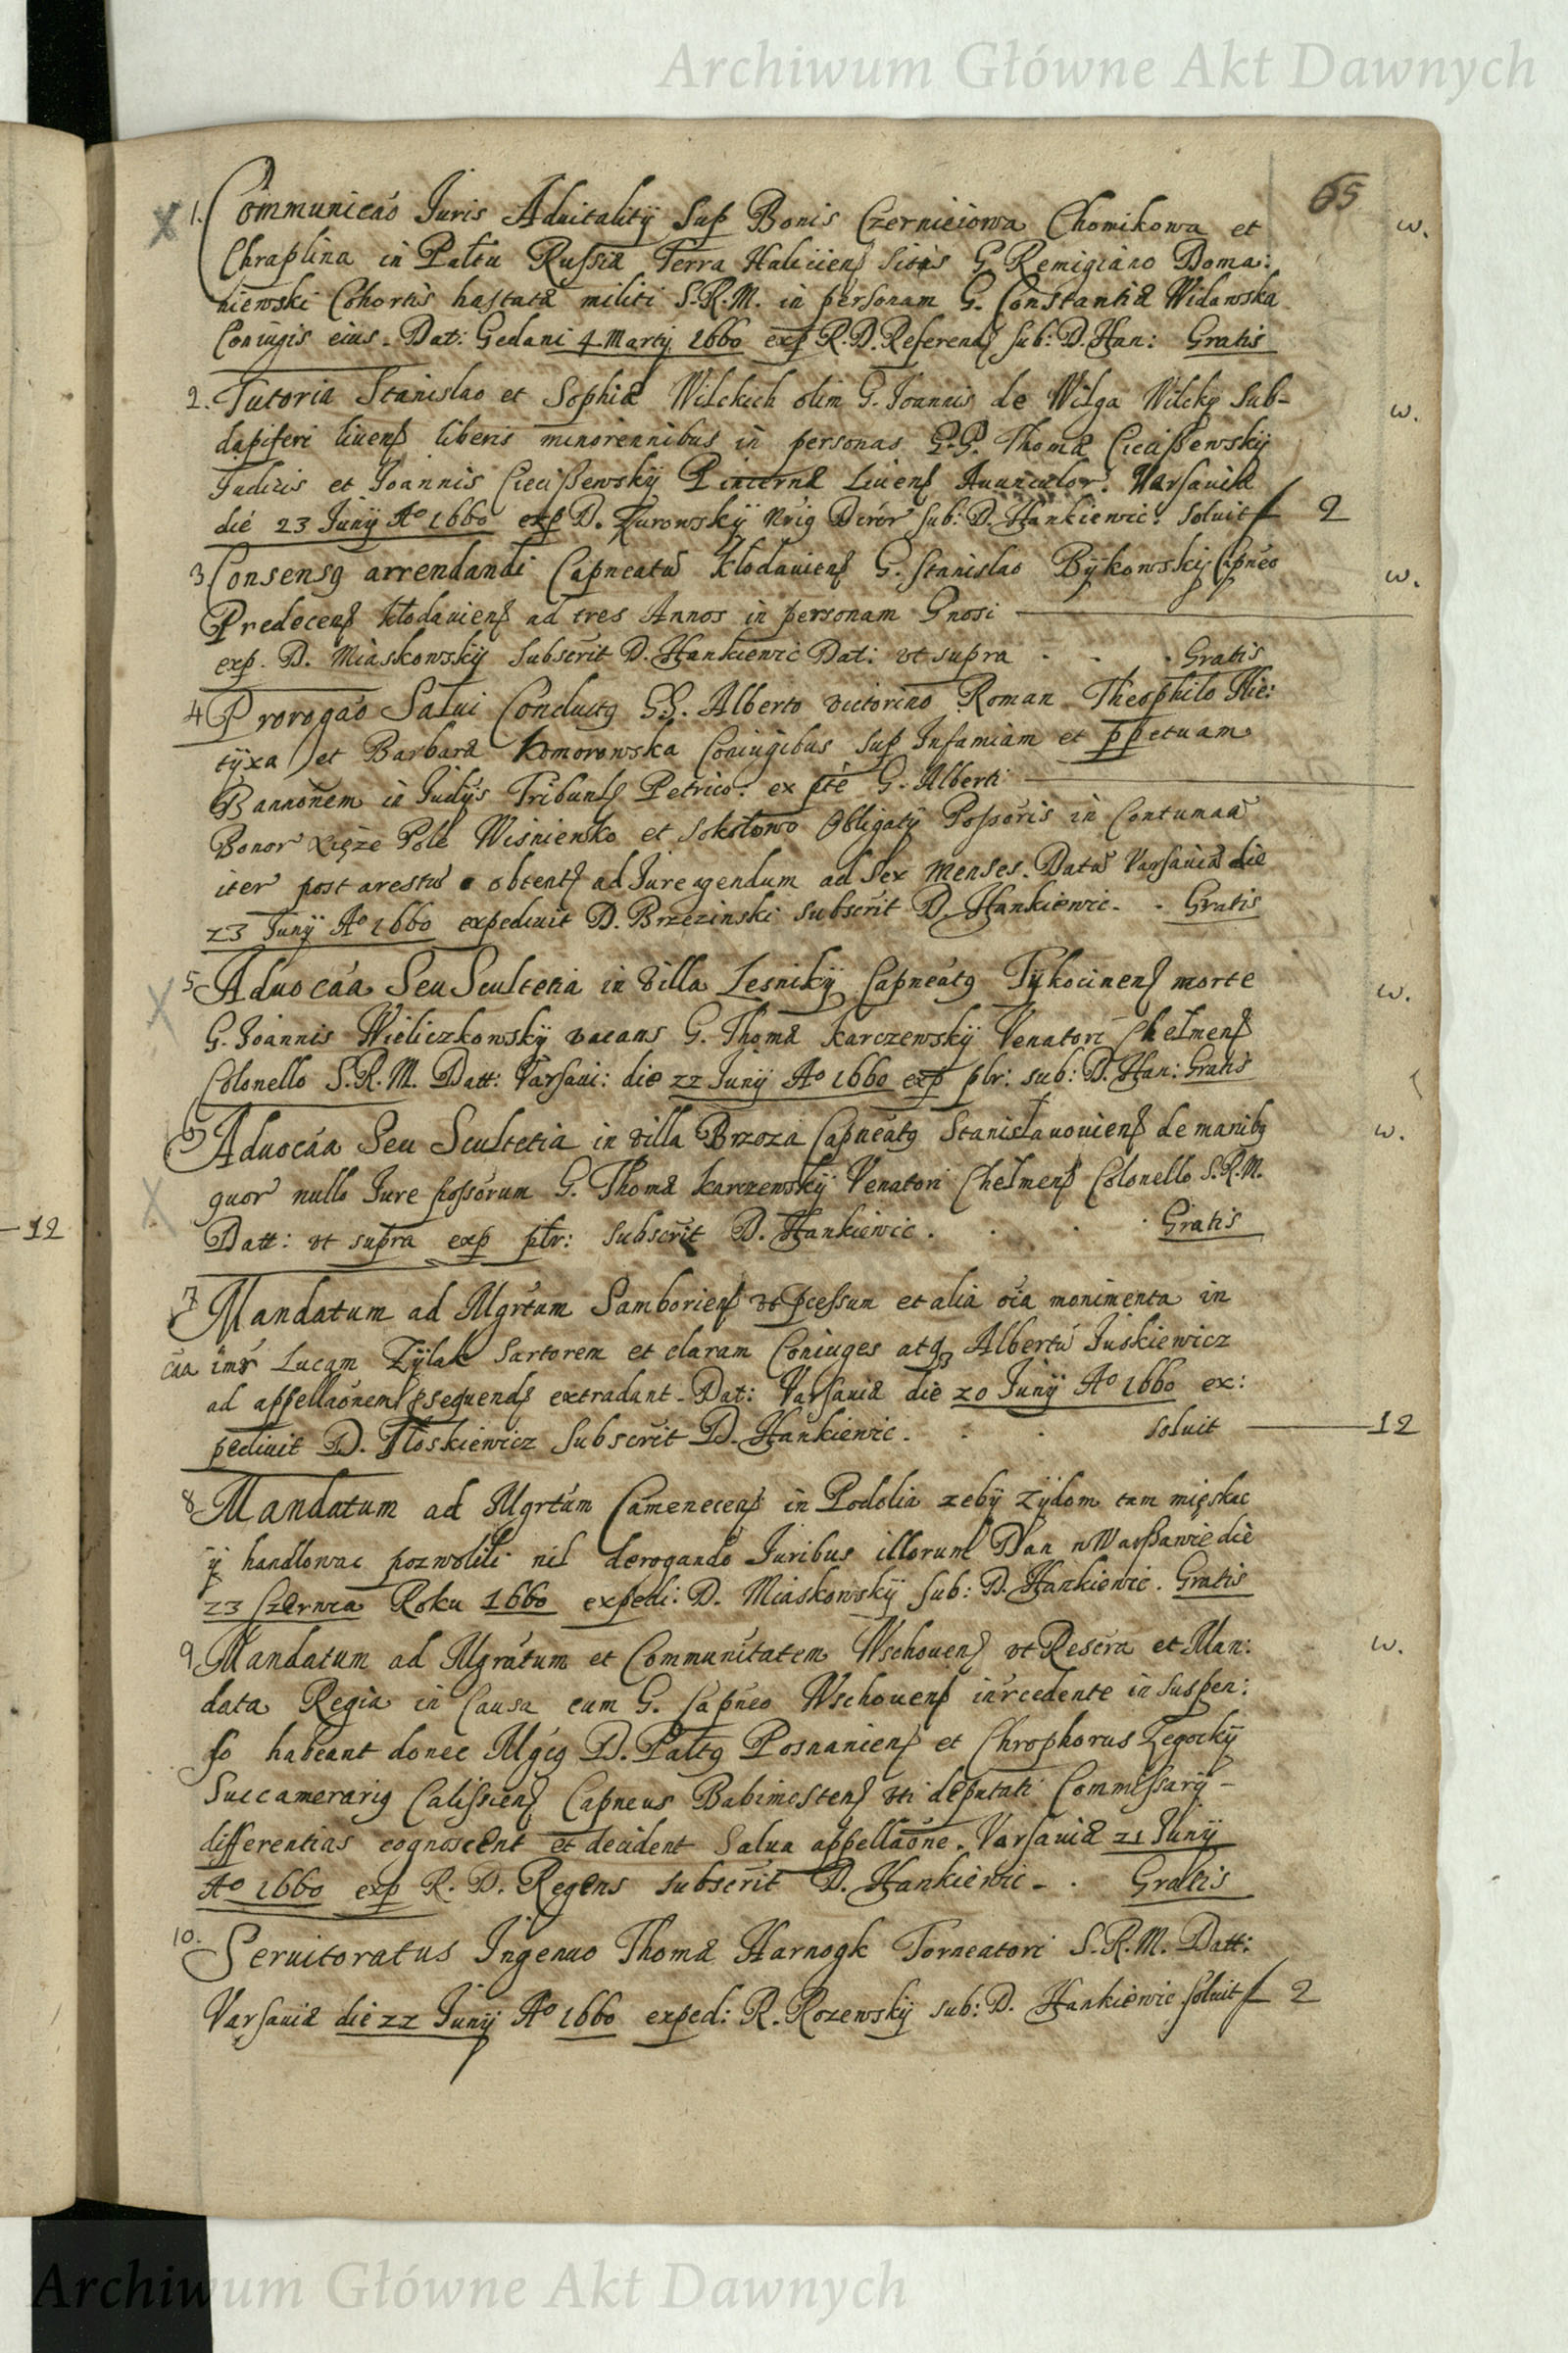 Archiwum Główne Akt Dawnych
65
1. Communicaõ Juris Aduitalitÿ Sup Bonis Czernieiowa Chomikowa et w.
Chraplina in Paltu Russiæ Terra Haliciens sitis G. Remigiano Doma:
niewski Cohortis hastatæ militi S.R.M. in personam G. Constantiæ Widawska
Coniugis eius. Dat: Gedani 4 Martÿ 1660 exp R.D. Referend sub: D. Han: Gratis
2. Tutoria Stanislao et Sophiæ Wilckich olim G. Joannis de Wilga Wilckÿ Sub- w.
dapiferi liuens liberis minorennibus in personas G.G. Thomæ Cieciszewskÿ
Judicis et Joannis Cieciszewskÿ Pincernæ Liuens Auunculor. Varsauiæ
die 23 Junÿ Aº 1660 exp D. Zurowskÿ sub: D. Hankiewic: soluit f 2
3. Consensg arrendandi Capneatũ Klodauiens G. Stanislao Bÿkowskÿ Capneo w.
Predecens Klodauiens ad tres Annos in personam Gnosi
exp. D. Miaskowskÿ Subscrit D. Hankiewic Dat: vt supra . . . Gratis
4 Prorogaõ Salui Conductg GG. Alberto victorino Roman Theophilo Hie:
tÿxa et Barbaræ Komorowska Coniugibus Sup Infamiam et ppetuam
Bannõnem in Judÿs Tribunls Petrico: ex pte G. Alberti
Bonor Xięże Pole Wisniewsko et Sokołowo Obligatÿ Possõris in Contumaã
iter post arestũ obtent ad Jure agendum ad Sex Menses. Datũ Varsauiæ die
23 Junÿ Aº 1660 expediuit D. Brzezinski subscrit D. Hankiewic. . Gratis
5 Aduocãa Seu Scultetia in villa Lesnikÿ Capneatg Tÿkocinens morte w.
G. Joannis Wieliczkowskÿ vacans G. Thomæ Karczewskÿ Venatori Chelmens
Colonello S.R.M. Datt: Varsaui: die 22 Junÿ Aº 1660 exp plr: sub: D. Han: Gratis
6 Aduocãa Seu Scultetia in villa Brzoza Capneatg Stanislauouiens de manibg w.
quor nullo Jure possorum G. Thomæ Karczewskÿ Venatori Chelmens Colonello S.R.M.
Datt: vt supra exp plr: subscrit D. Hankiewic . . . . Gratis
7 Mandatum ad Mgrtum Samboriens vt pcessum et alia oĩa monimenta in
cãa inter Lucam Zÿlak Sartorem et claram Coniuges atq Albertũ Juskiewicz
ad appellaõnem psequend extradant. Dat: Varsauiæ die 20 Junÿ Aº 1660 ex:
pediuit D. Floskiewicz Subscrit D. Hankiewic. . . soluit 12
8 Mandatum ad Mgrtum Camenecens in Podolia zebÿ zÿdom tam mięskac
ÿ handlowac pozwolili nil derogando Juribus illorum Dan w Warszawie die
23 Czerwca Roku 1660 expedi: D. Miaskowskÿ sub: D. Hankiewic. Gratis
9 Mandatum ad Mgratum et Communitatem Wschouens vt Rescra et Man: w.
data Regia in Causa cum G. Capneo Wschouens intercedente in suspen:
so habeant donec Mgcg D. Paltg Posnaniens et Chrophorus Zegockÿ
Succamerarig Calissiens Capneus Babimostens vti deputati Commissarÿ -
differentias cognoscent et decident Salua appellaõne. Varsauiæ 21 Junÿ
Aº 1660 exp R. D. Regens subscrit D. Hankiewic - . Gratis
10. Seruitoratus Ingenuo Thomæ Harnogk Torneatori S.R.M. Datt:
Varsauiæ die 22 Junÿ Aº 1660 exped: R. Rozewskÿ sub: D. Hankiewic soluit f 2
12
Archiwum Główne Akt Dawnych